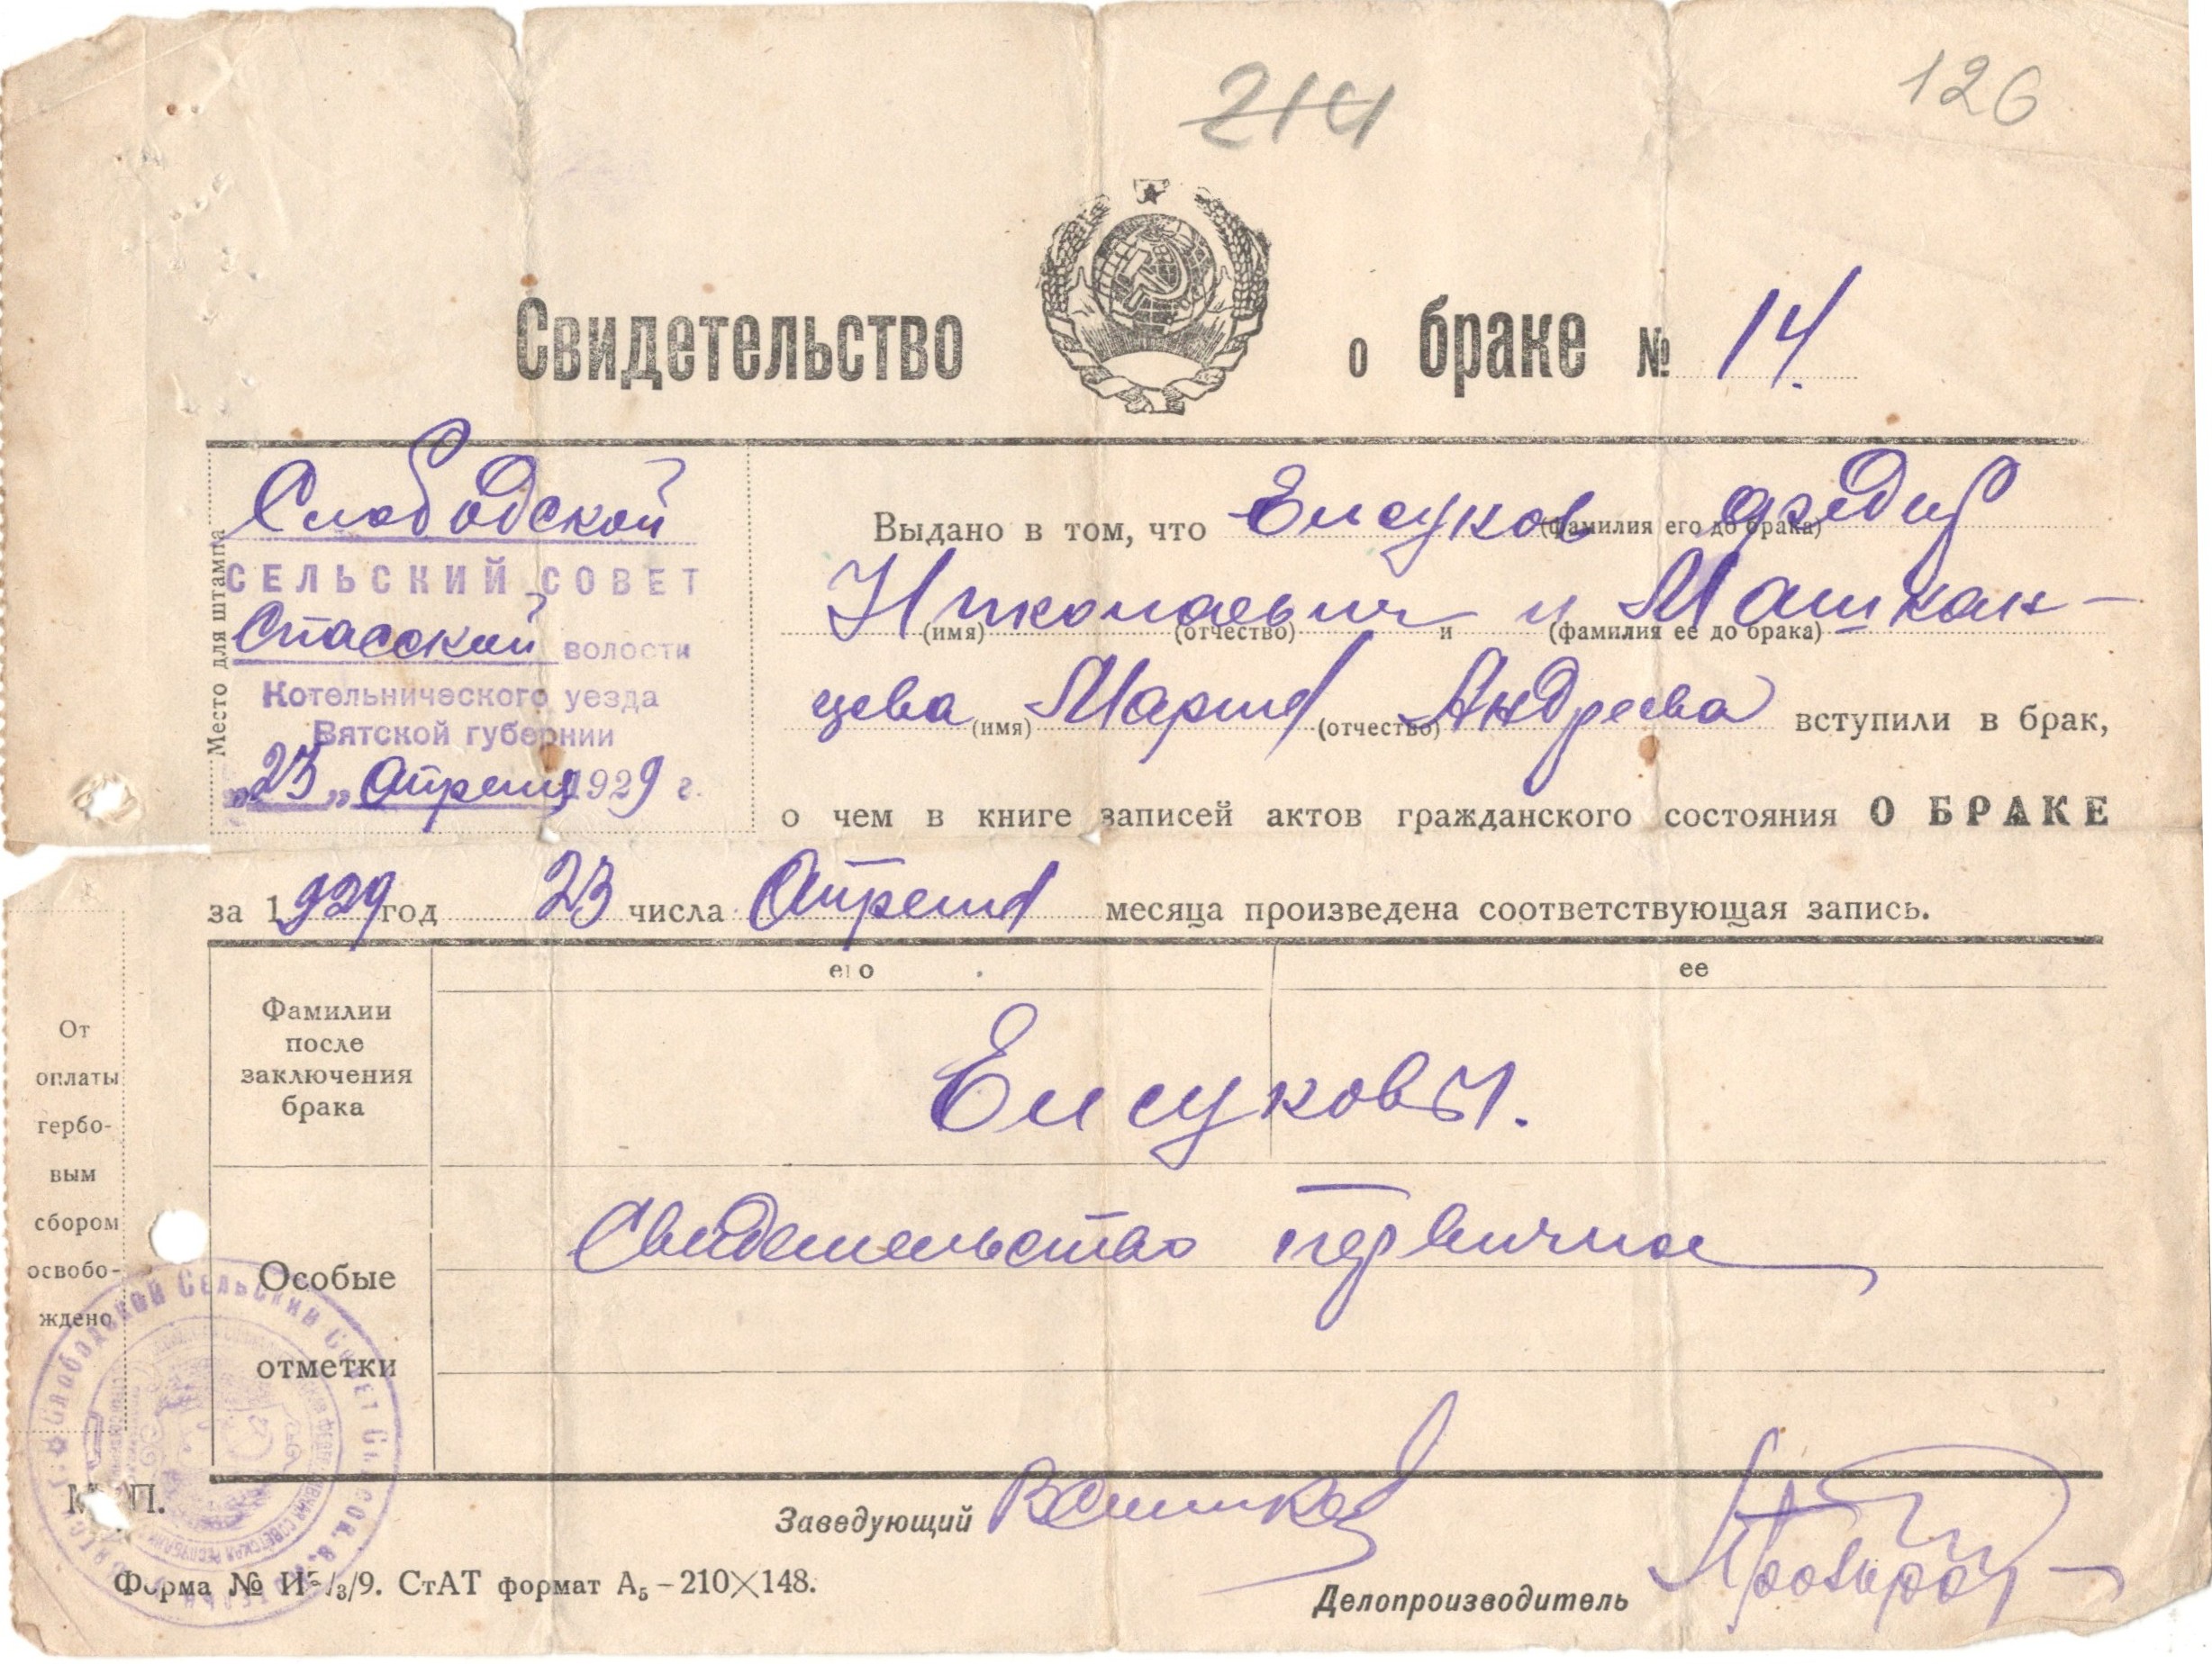 214
126
Свидетельство о браке № 14.
Место для штампа
Слободской
СЕЛЬСКИЙ СОВЕТ
Спасской волости
Котельнического уезда
Вятской губернии
"23" Апреля 1929 г.
Выдано в том, что Елсуков
(фамилия его до брака)
Николаевич и Машкан-
(имя) (отчество) и (фамилия ее до брака)
цева Мария Андреева вступили в брак,
(имя) (отчество)
о чем в книге записей актов гражданского состояния О БРАКЕ
за 1929 год 23 числа Апреля месяца произведена соответствующая запись.
его ее
Фамилии
после
заключения
брака
Елсуковы.
Особые
отметки
Свидетельство первичное
От
оплаты
гербо-
вым
сбором
освобо-
ждено
Слободской Сельский Совет
М. П.
Заведующий
Делопроизводитель
Форма № /3/9. СтАТ формат А5 – 210×148.